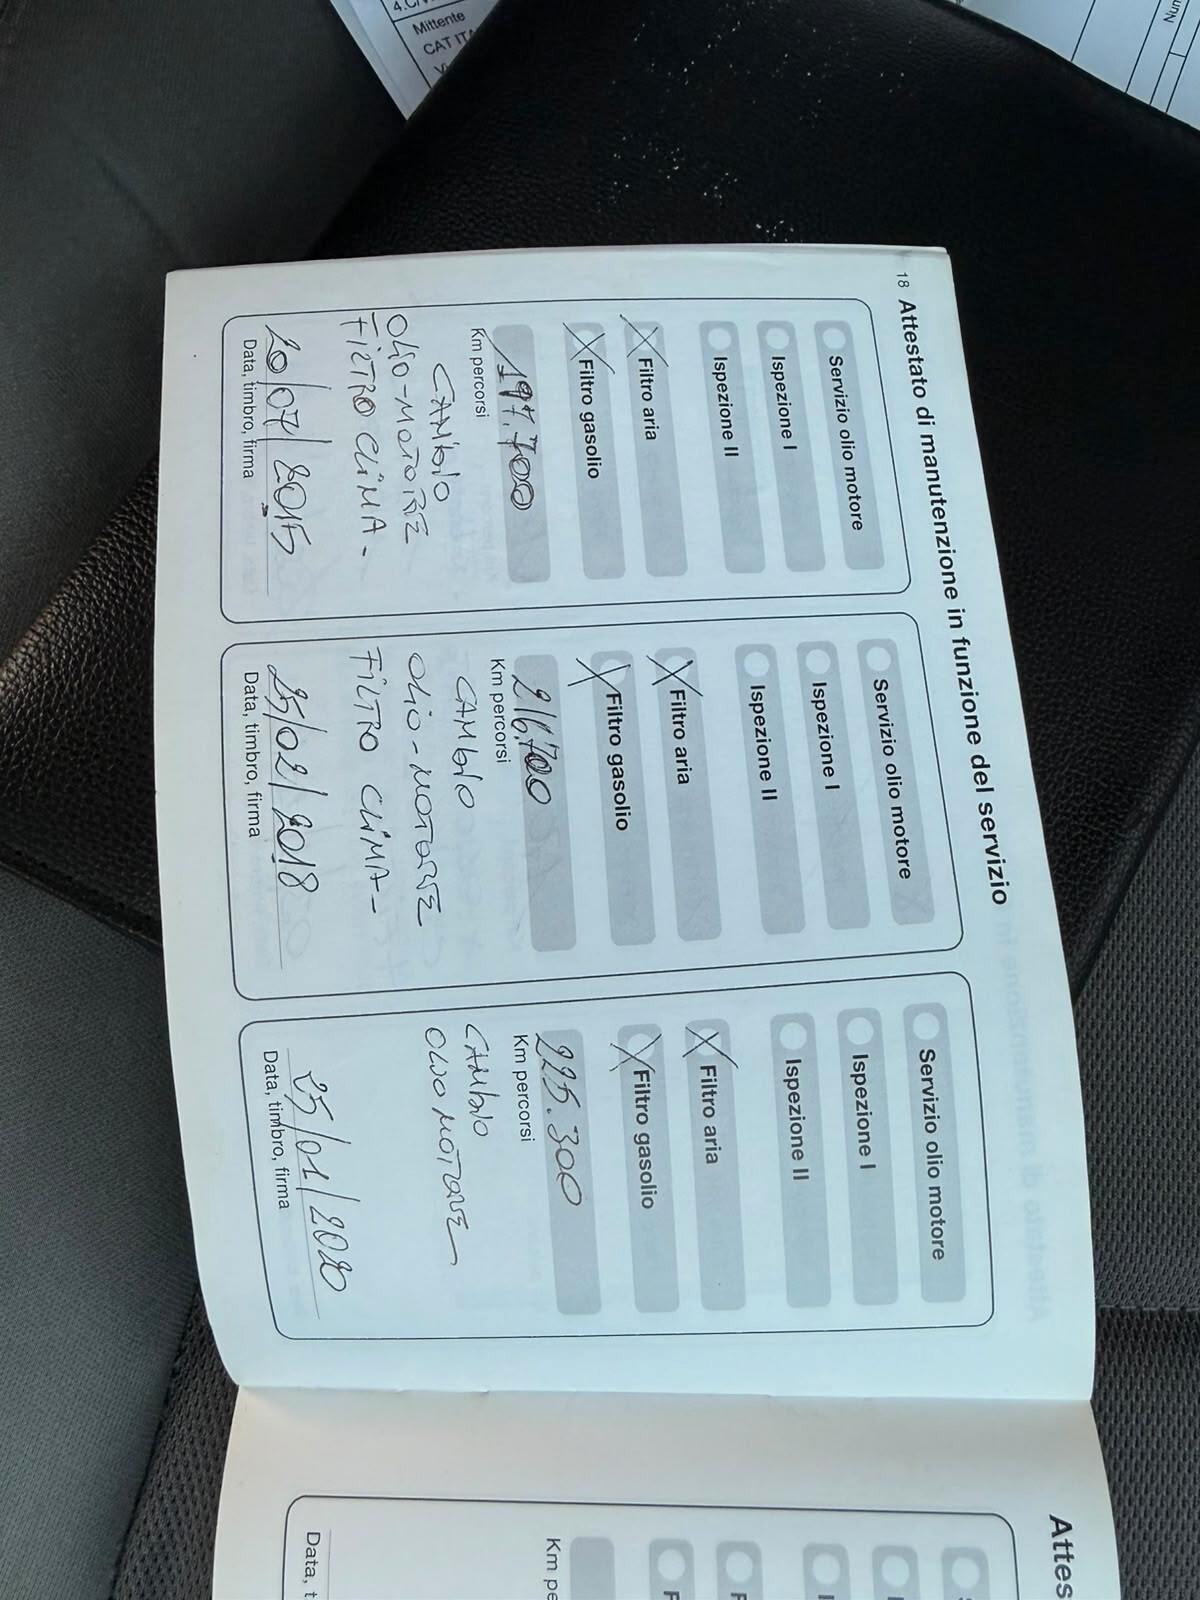 4.C/V
Mittente
CAT ITA
Num
18 Attestato di manutenzione in funzione del servizio
Servizio olio motore
Ispezione I
Ispezione II
X Filtro aria
X Filtro gasolio
197.700
Km percorsi
CAMBIO
OLIO-MOTORE
FILTRO CLIMA-
20/07/2015
Data, timbro, firma
Servizio olio motore
Ispezione I
Ispezione II
X Filtro aria
X Filtro gasolio
216.700
Km percorsi
CAMBIO
OLIO-MOTORE
FILTRO CLIMA-
25/02/2018
Data, timbro, firma
Servizio olio motore
Ispezione I
Ispezione II
X Filtro aria
X Filtro gasolio
225.300
Km percorsi
CAMBIO
OLIO MOTORE
25/01/2020
Data, timbro, firma
Attes
Km pe
Data, t